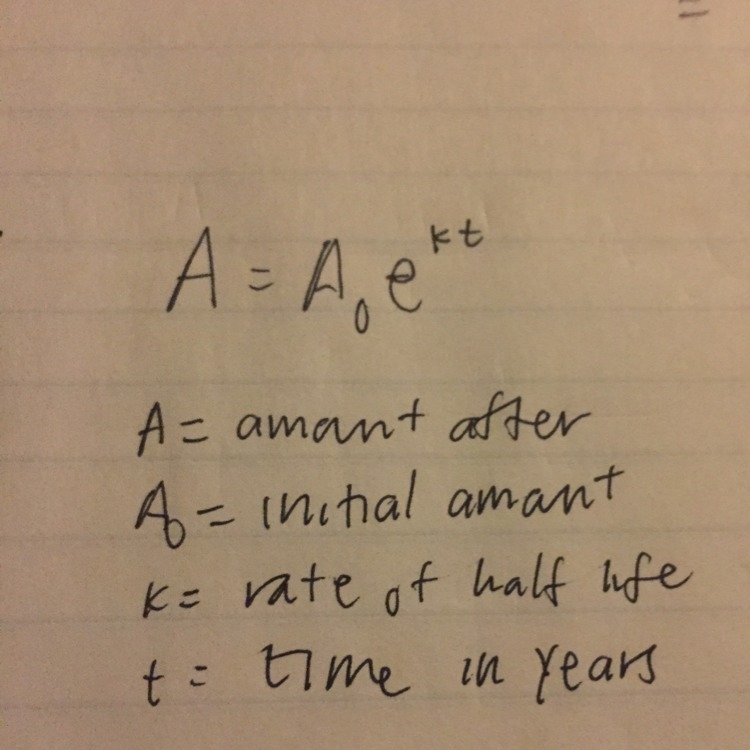 A = A₀e^{kt}
A = amant after
A₀ = initial amant
k = rate of half life
t = time in years